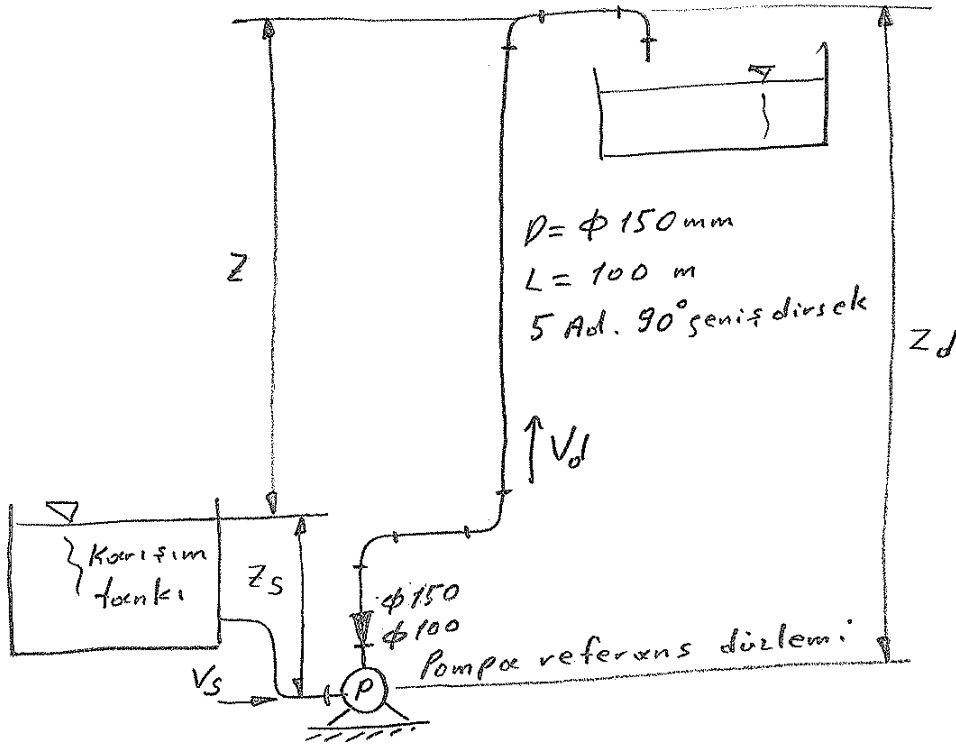 Z
D= ϕ 150 mm
L = 100 m
5 Ad. 90° geniş dirsek
Zd
Vd
Karışım
tankı
Zs
ϕ 150
ϕ 100
Pompa referans düzlemi
Vs
P